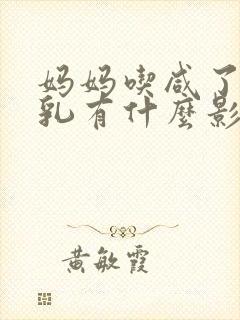 妈妈喫咸了
乳有什麽影
黄敏霞